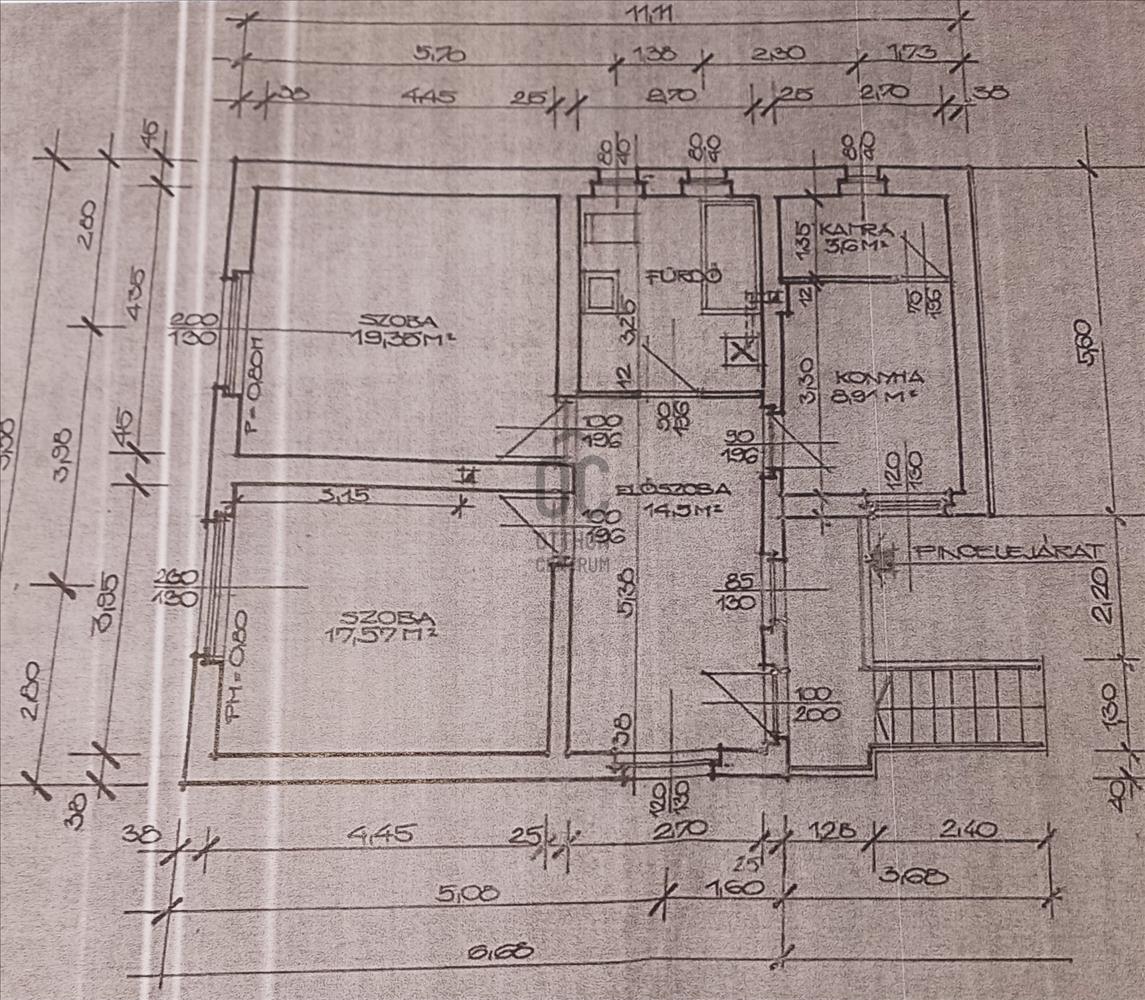 11,11
5,70 138 2,30 1,73
38 4,45 25 2,70 25 2,70 38
45
80
40
80
40
80
40
2,80
4,35
1,35
KAMRA
3,6 M²
FÜRDŐ
12
70
196
200
130
SZOBA
19,35 M²
3,25
5,60
P=0,80M
12
3,30
KONYHA
8,91 M²
3,98
45
100
196
90
196
90
196
120
130
3,15
ELŐSZOBA
14,5 M²
ÓC
OTTHON
CENTRUM
100
196
PINCELEJÁRAT
200
130
3,95
5,30
85
130
2,20
SZOBA
17,57 M²
PM=0,80
2,80
100
200
1,30
38
120
130
38
40
38 4,45 25 2,70 128 2,40
25
5,08 1,60 3,68
6,68